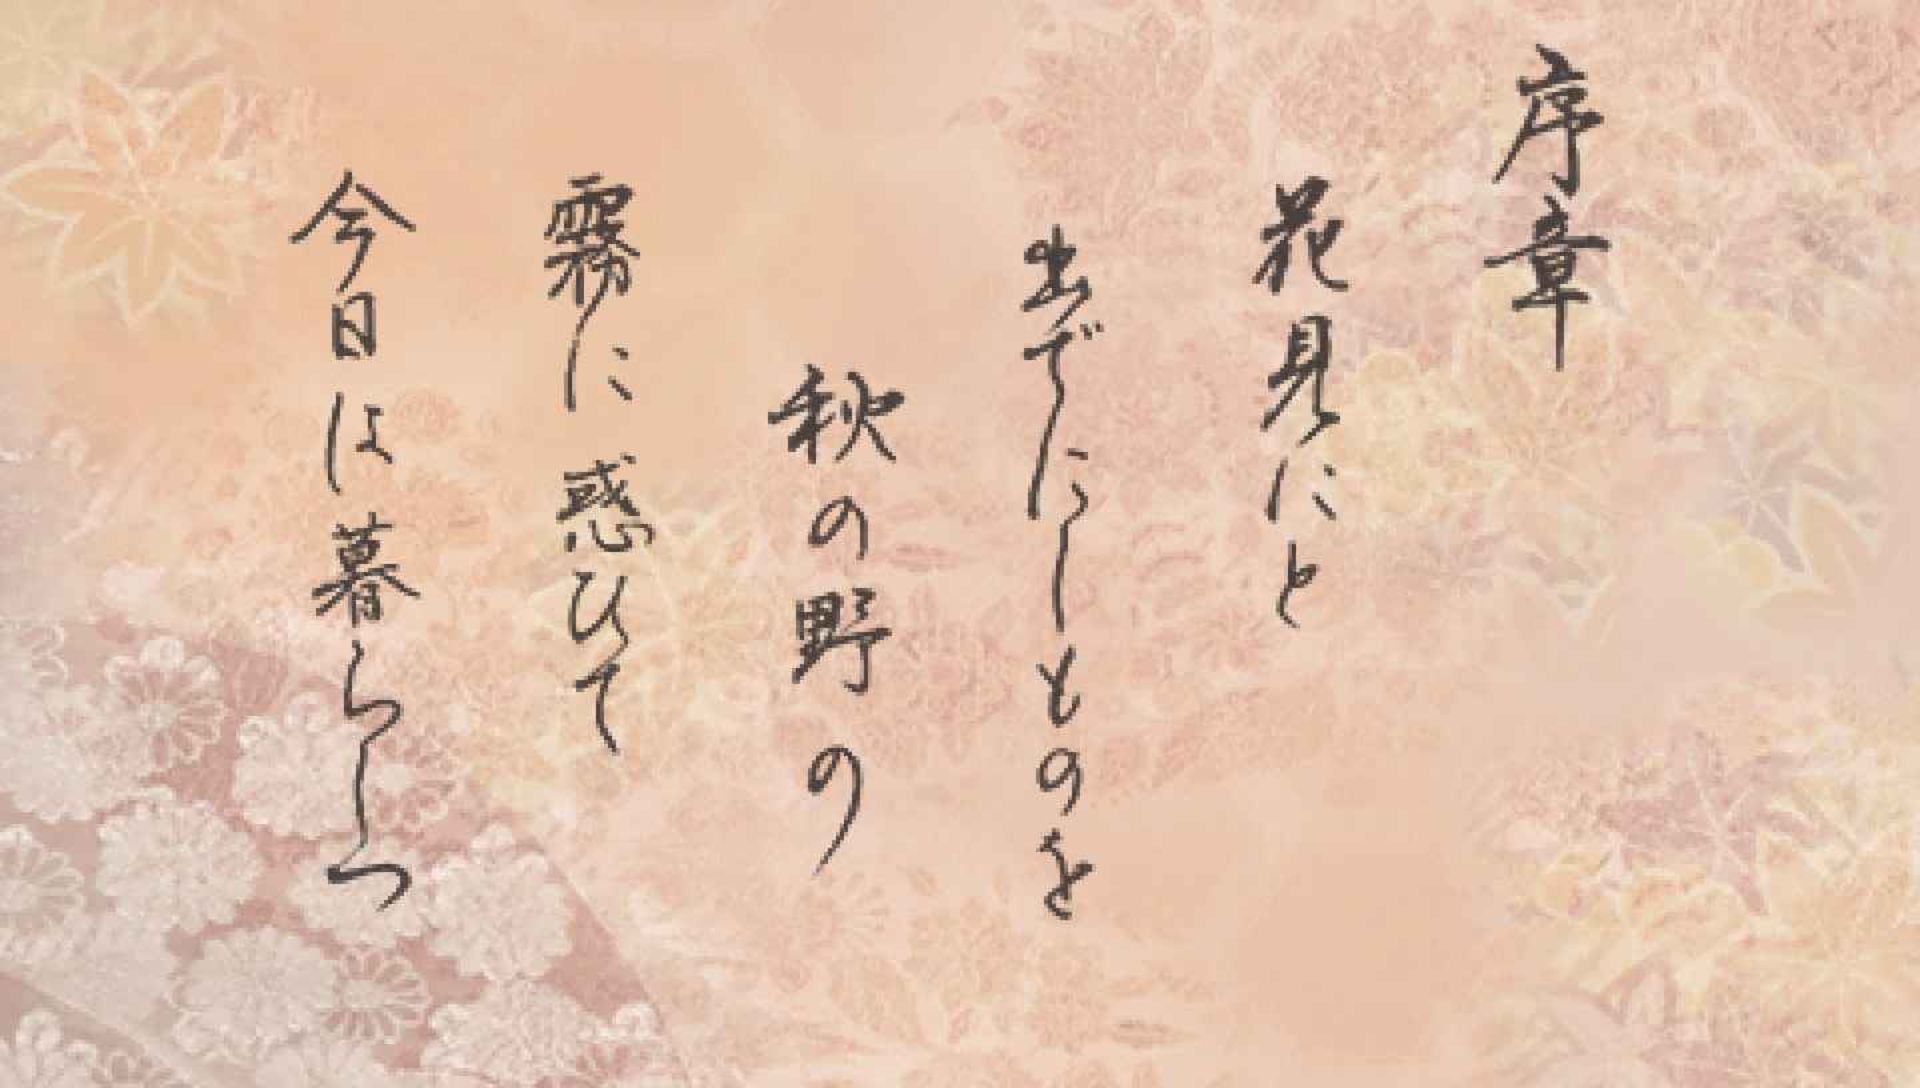 序章
花見にと
出でにしものを
秋の野の
霧に惑ひて
今日は暮らしつ